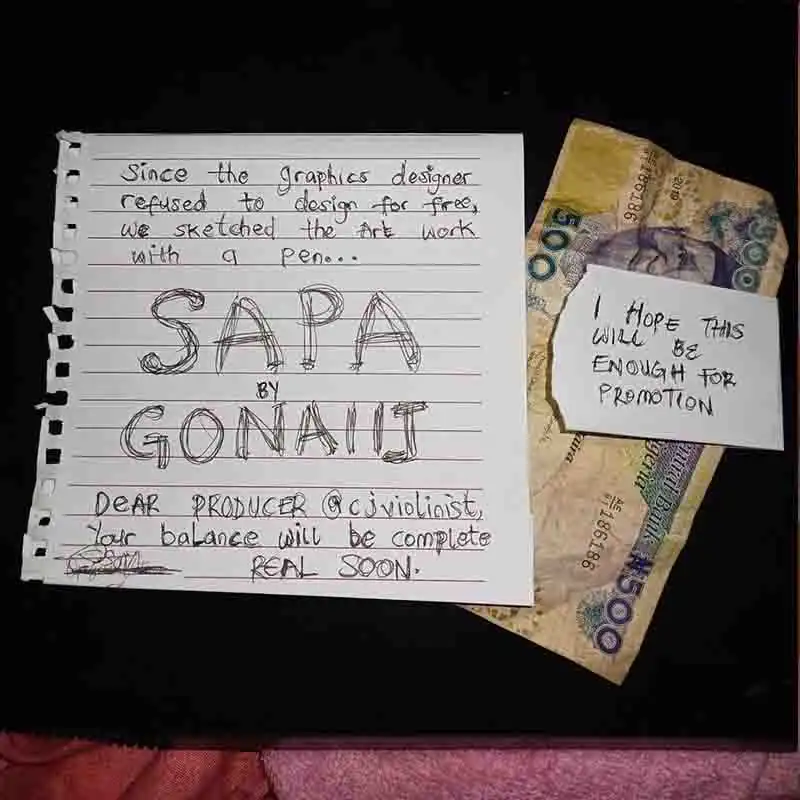 Since the graphics designer
refused to design for free,
we sketched the Art work
with a pen...
SAPA
BY
GONAIIJ
DEAR PRODUCER @cjviolinist,
Your balance will be complete
REAL SOON.
I HOPE THIS
WILL BE
ENOUGH FOR
PROMOTION
500
2019
186186
500
186186
₦500